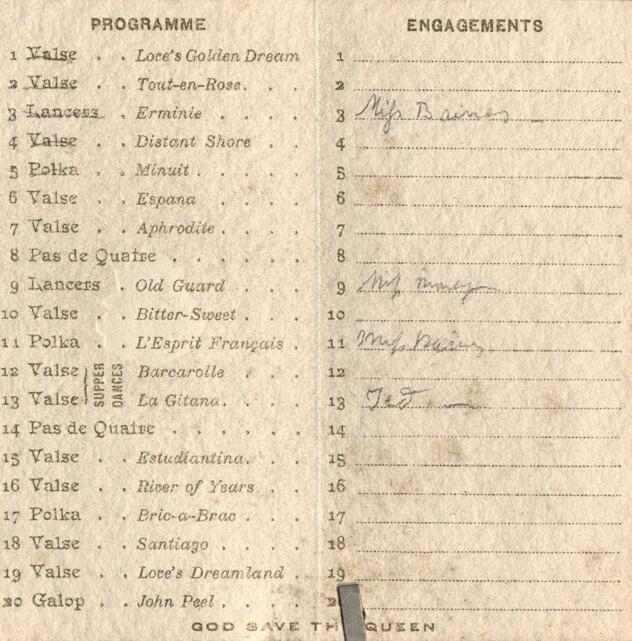 PROGRAMME
1 Valse . . Love's Golden Dream
2 Valse . . Tout-en-Rose . . .
3 Lancers . . Erminie . . . .
4 Valse . . Distant Shore . . .
5 Polka . . Minuit . . . . .
6 Valse . . Espana . . . .
7 Valse . . Aphrodite . . . .
8 Pas de Quatre . . . . . .
9 Lancers . Old Guard . . . .
10 Valse . . Bitter-Sweet . . .
11 Polka . . L'Esprit Français .
12 Valse Barcarolle . . .
13 Valse La Gitana . . . .
SUPPER DANCES
14 Pas de Quatre . . . . . .
15 Valse . . Estudiantina . . .
16 Valse . . River of Years . . .
17 Polka . . Bric-a-Brac . . .
18 Valse . . Santiago . . . .
19 Valse . . Love's Dreamland .
20 Galop . . John Peel . . . .
ENGAGEMENTS
1
2
3 Miss Baines
4
5
6
7
8
9 Miss
10
11 Miss Baines
12
13 Ted
14
15
16
17
18
19
GOD SAVE TH QUEEN